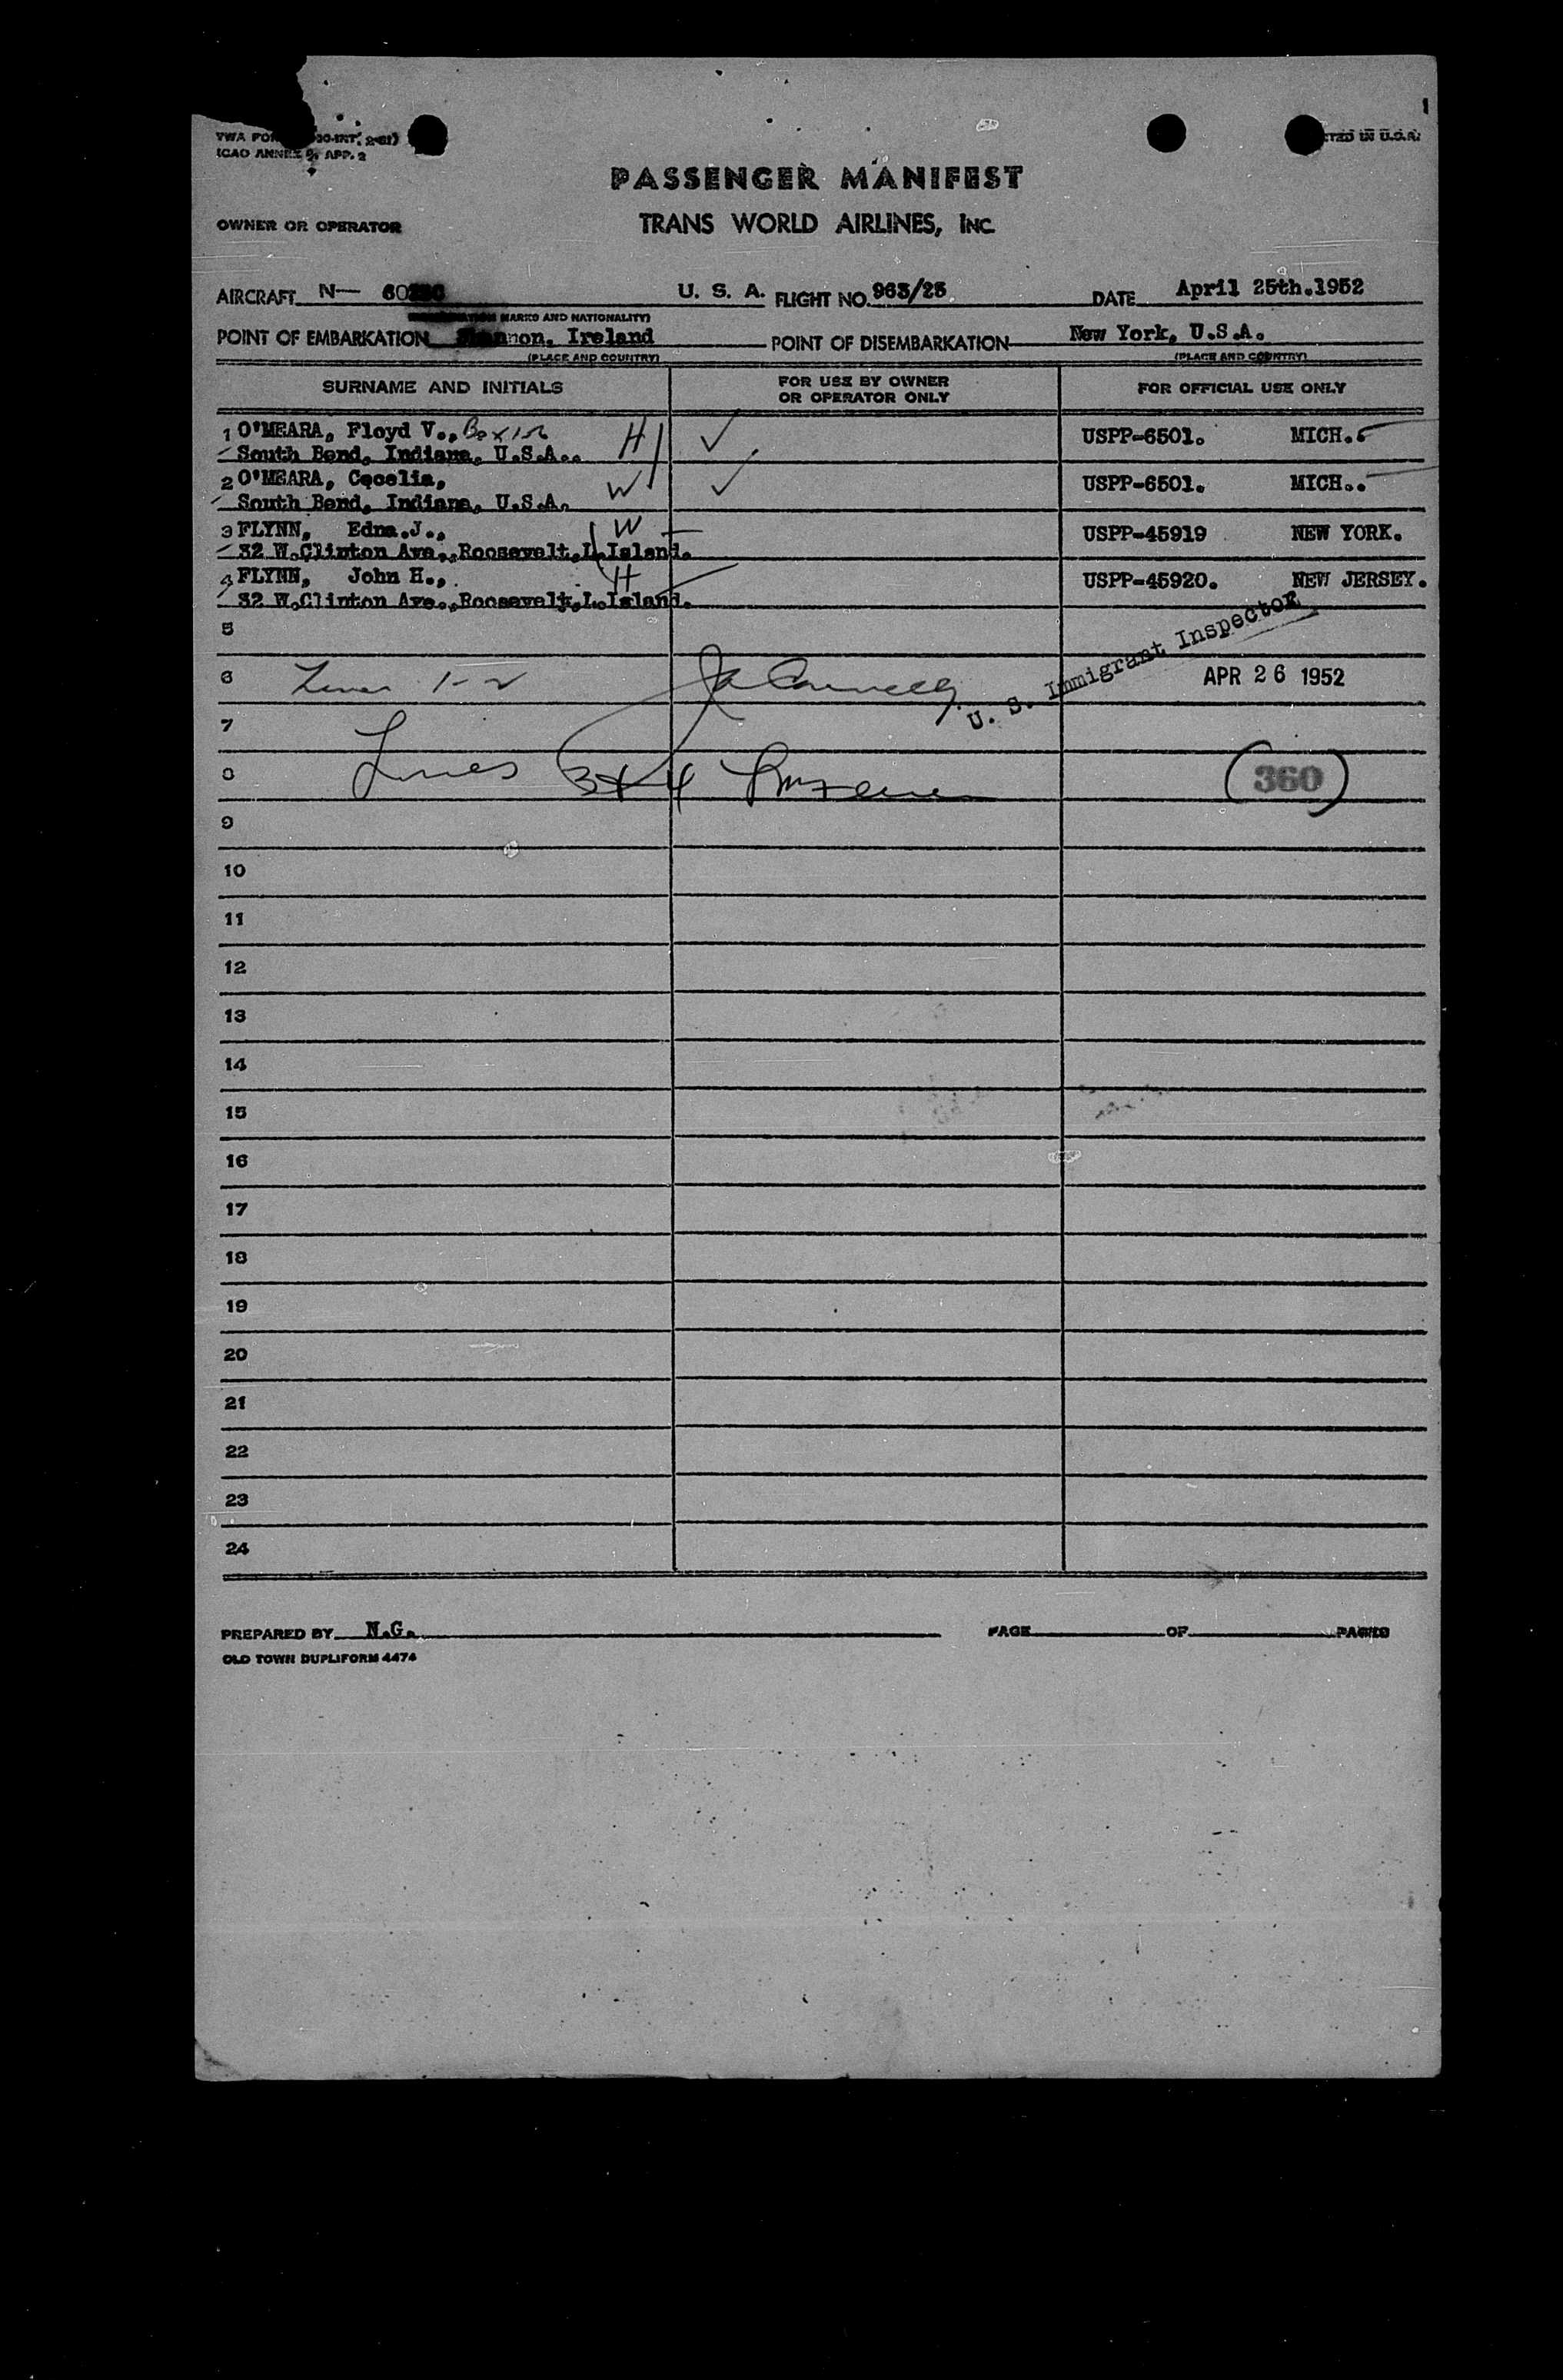 TWA FOR
ICAO ANNEX 9, APP. 2
PASSENGER MANIFEST
OWNER OR OPERATOR TRANS WORLD AIRLINES, INC.
AIRCRAFT N— U. S. A. FLIGHT NO. 963/25 DATE April 25th.1952
MARKS AND NATIONALITY)
POINT OF EMBARKATION Shannon, Ireland POINT OF DISEMBARKATION New York, U.S.A.
(PLACE AND COUNTRY) (PLACE AND COUNTRY)
SURNAME AND INITIALS FOR USE BY OWNER OR OPERATOR ONLY FOR OFFICIAL USE ONLY
1 O'MEARA, Floyd V., H USPP-6501. MICH.
South Bend, Indiana, U.S.A..
2 O'MEARA, Cecelia, W USPP-6501. MICH..
South Bend, Indiana, U.S.A.
3 FLYNN, Edna.J., W USPP-45919 NEW YORK.
32 W.Clinton Ave.,Roosevelt,L.Island.
4 FLYNN, John H., H USPP-45920. NEW JERSEY.
32 W.Clinton Ave.,Roosevelt,L.Island.
5
U. S. Immigrant Inspector
6 Lines 1-2 APR 26 1952
7
8 Lines 3 + 4 360
9
10
11
12
13
14
15
16
17
18
19
20
21
22
23
24
PREPARED BY N.G. PAGE OF PAGES
OLD TOWN DUPLIFORM 4474